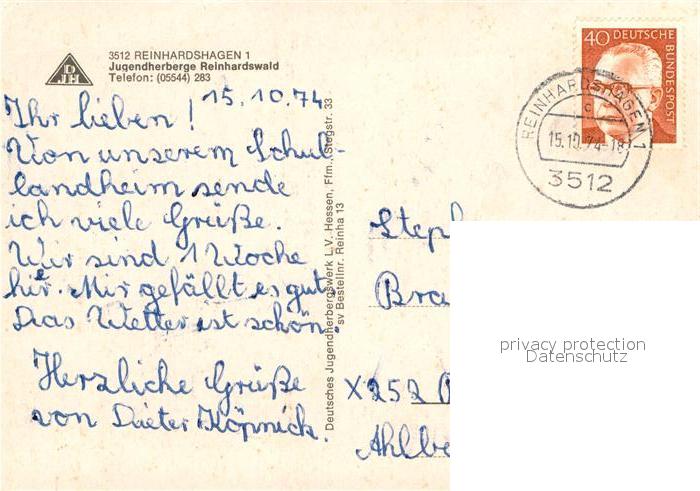 3512 REINHARDSHAGEN 1
Jugendherberge Reinhardswald
Telefon: (05544) 283
DJH
40 DEUTSCHE BUNDESPOST
REINHARDSHAGEN 1
c
15.10.74-18
3512
15.10.74
Ihr lieben!
Von unserem Schul-
landheim sende
ich viele Grüße.
Wir sind 1 Woche
hier. Mir gefällt es gut.
Das Wetter ist schön.
Herzliche Grüße
von Dieter Köpnick.
Deutsches Jugendherbergswerk L.V. Hessen, Ffm., Stegstr. 33
sv Bestellnr. Reinha 13
Steph
Bra
X252
Ahlbe
privacy protection
Datenschutz